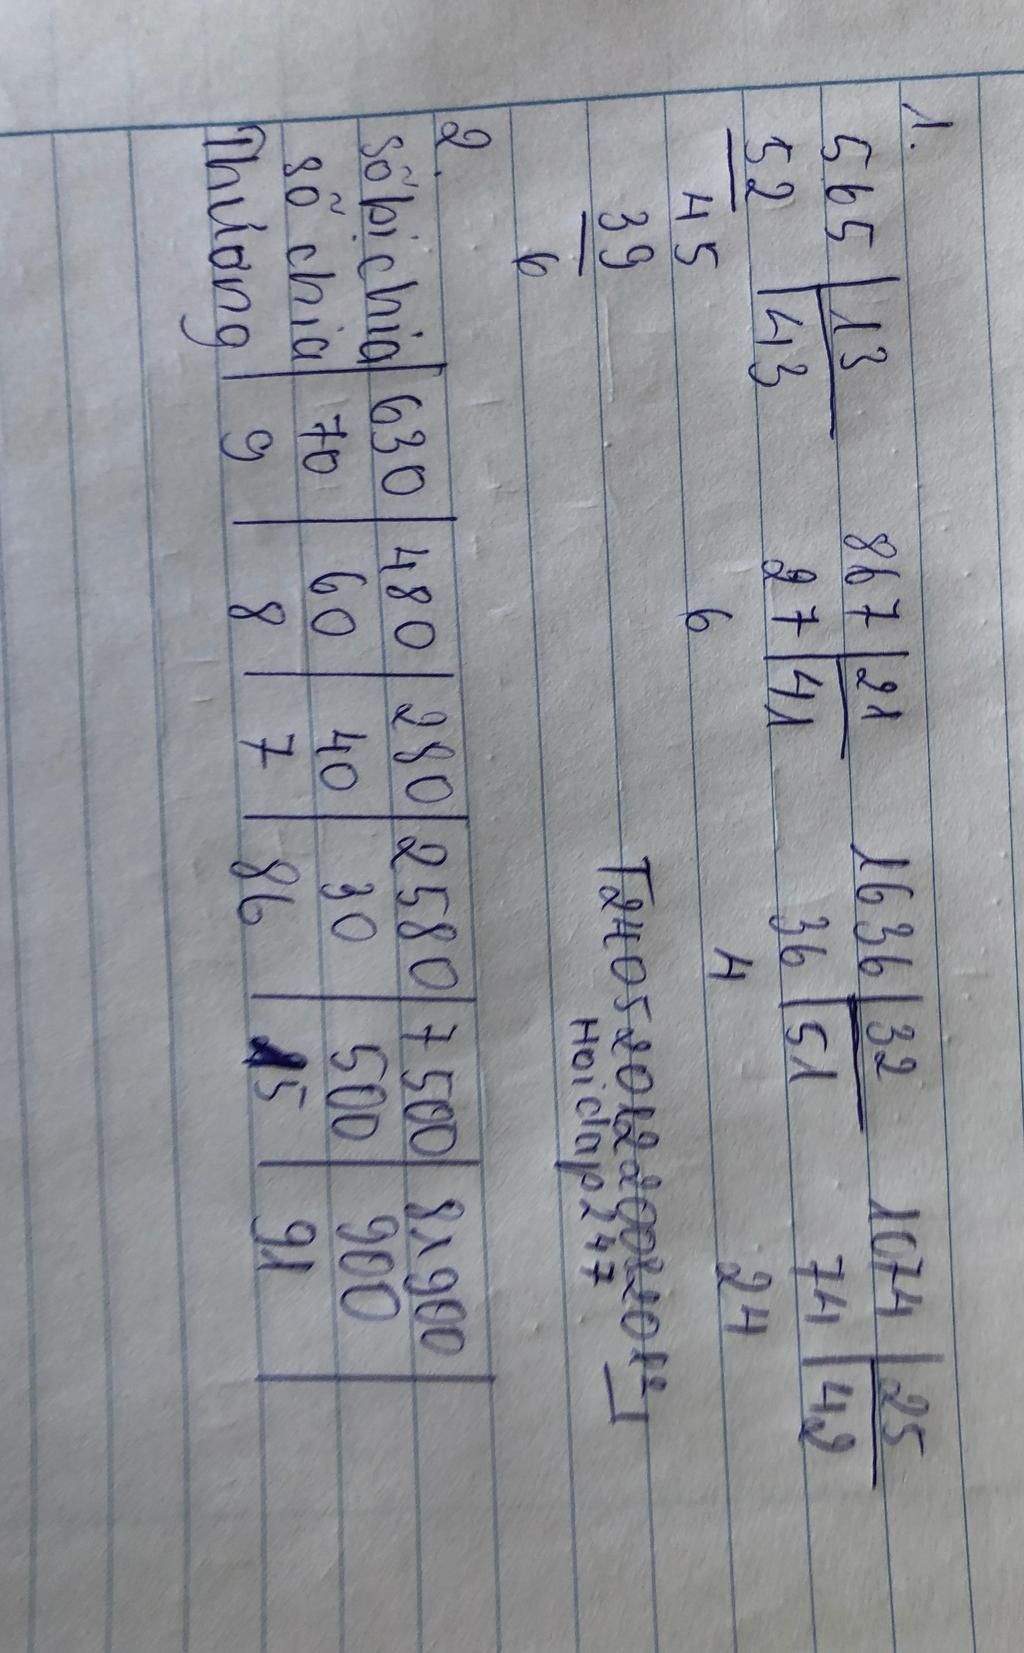 1.
565 13 867 21 1636 32 1074 25
52 43 27 41 36 51 74 42
45 6 4 24
39
6
T2405201220022012
Hoidap247
2.
Số bị chia 630 480 280 2580 7500 81900
Số chia 70 60 40 30 500 900
Thương 9 8 7 86 15 91